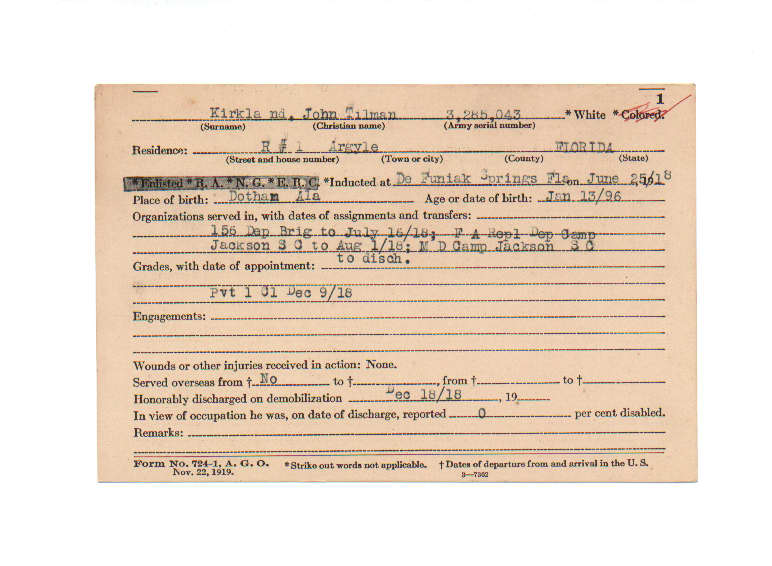 1
Kirkland, John Tilman 3,285,043 * White * Colored.
(Surname) (Christian name) (Army serial number)
Residence: R # 1 Argyle FLORIDA
(Street and house number) (Town or city) (County) (State)
*Enlisted *R. A. *N. G. *E. R. C. *Inducted at De Funiak Springs Fla on June 25, 1918
Place of birth: Dothan Ala Age or date of birth: Jan 13/96
Organizations served in, with dates of assignments and transfers:
156 Dep Brig to July 16/18; F A Repl Dep Camp
Jackson S C to Aug 1/18; M D Camp Jackson S C
to disch.
Grades, with date of appointment:
Pvt 1 Cl Dec 9/18
Engagements:
Wounds or other injuries received in action: None.
Served overseas from † No to †, from † to †
Honorably discharged on demobilization Dec 18/18, 19
In view of occupation he was, on date of discharge, reported 0 per cent disabled.
Remarks:
Form No. 724-1, A. G. O. *Strike out words not applicable. † Dates of departure from and arrival in the U. S.
Nov. 22, 1919. 3—7302